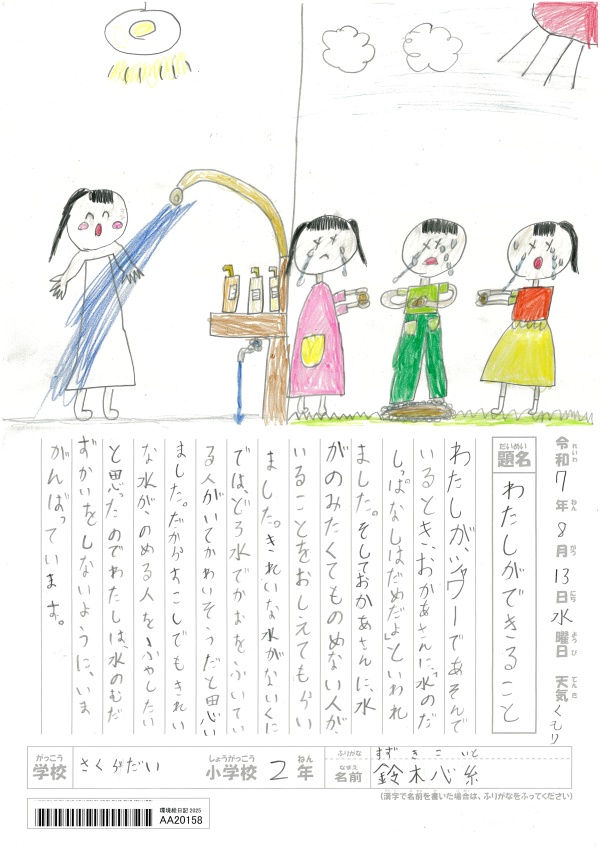 令和7年8月13日水曜日 天気くもり
れいわ ねん がつ にち ようび てんき
だいめい
題名 わたしができること
わたしが、シャワーであそんで
いるとき、おかあさんに、「水のだ
しっぱなしはだめだよ」といわれ
ました。そしておかあさんに、水
がのみたくてものめない人が
いることをおしえてもらい
ました。きれいな水がないくに
では、どろ水でかおをふいてい
る人がいてかわいそうだと思い
ました。だからすこしでもきれい
な水が、のめる人をふやしたい
と思ったのでわたしは、水のむだ
ずかいをしないように、いま
がんばっています。
がっこう しょうがっこう ねん ふりがな すずきこいと
学校 さくらだい 小学校 2年 なまえ 名前 鈴木心糸
(漢字で名前を書いた場合は、ふりがなをふってください)
環境絵日記 2025
AA20158